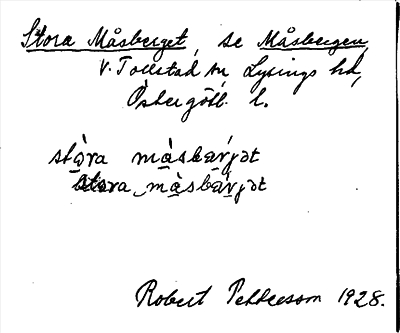 Stora Måsberget, se Måsbergen,
V. Tollstad sn Lysings hd,
Östergötl. l.
stòra màsbærjət
stora màsbærjət
Robert Pettersson 1928.